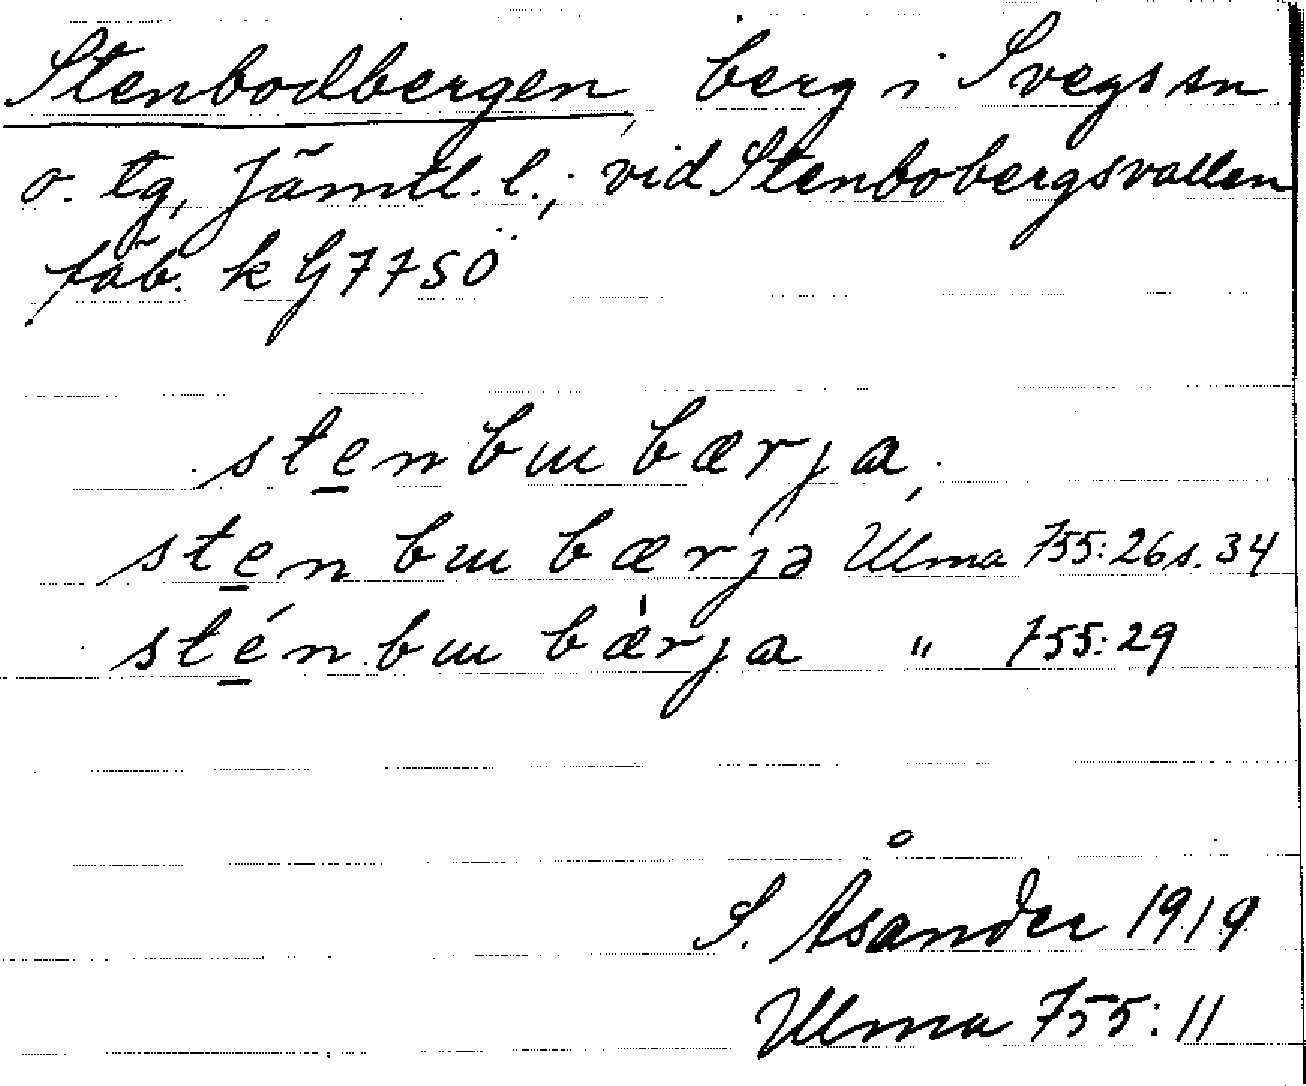 Stenbodbergen, berg i Svegs sn
o. tg, Jämtl. l.; vid Stenbobergsvallen
fäb. k G 7 7 SÖ
stenbɯbærja,
stenbɯbærjə Ulma 755:26 s. 34
sténbɯbærja " 755:29
S. Åsander 1919
Ulma 755:11